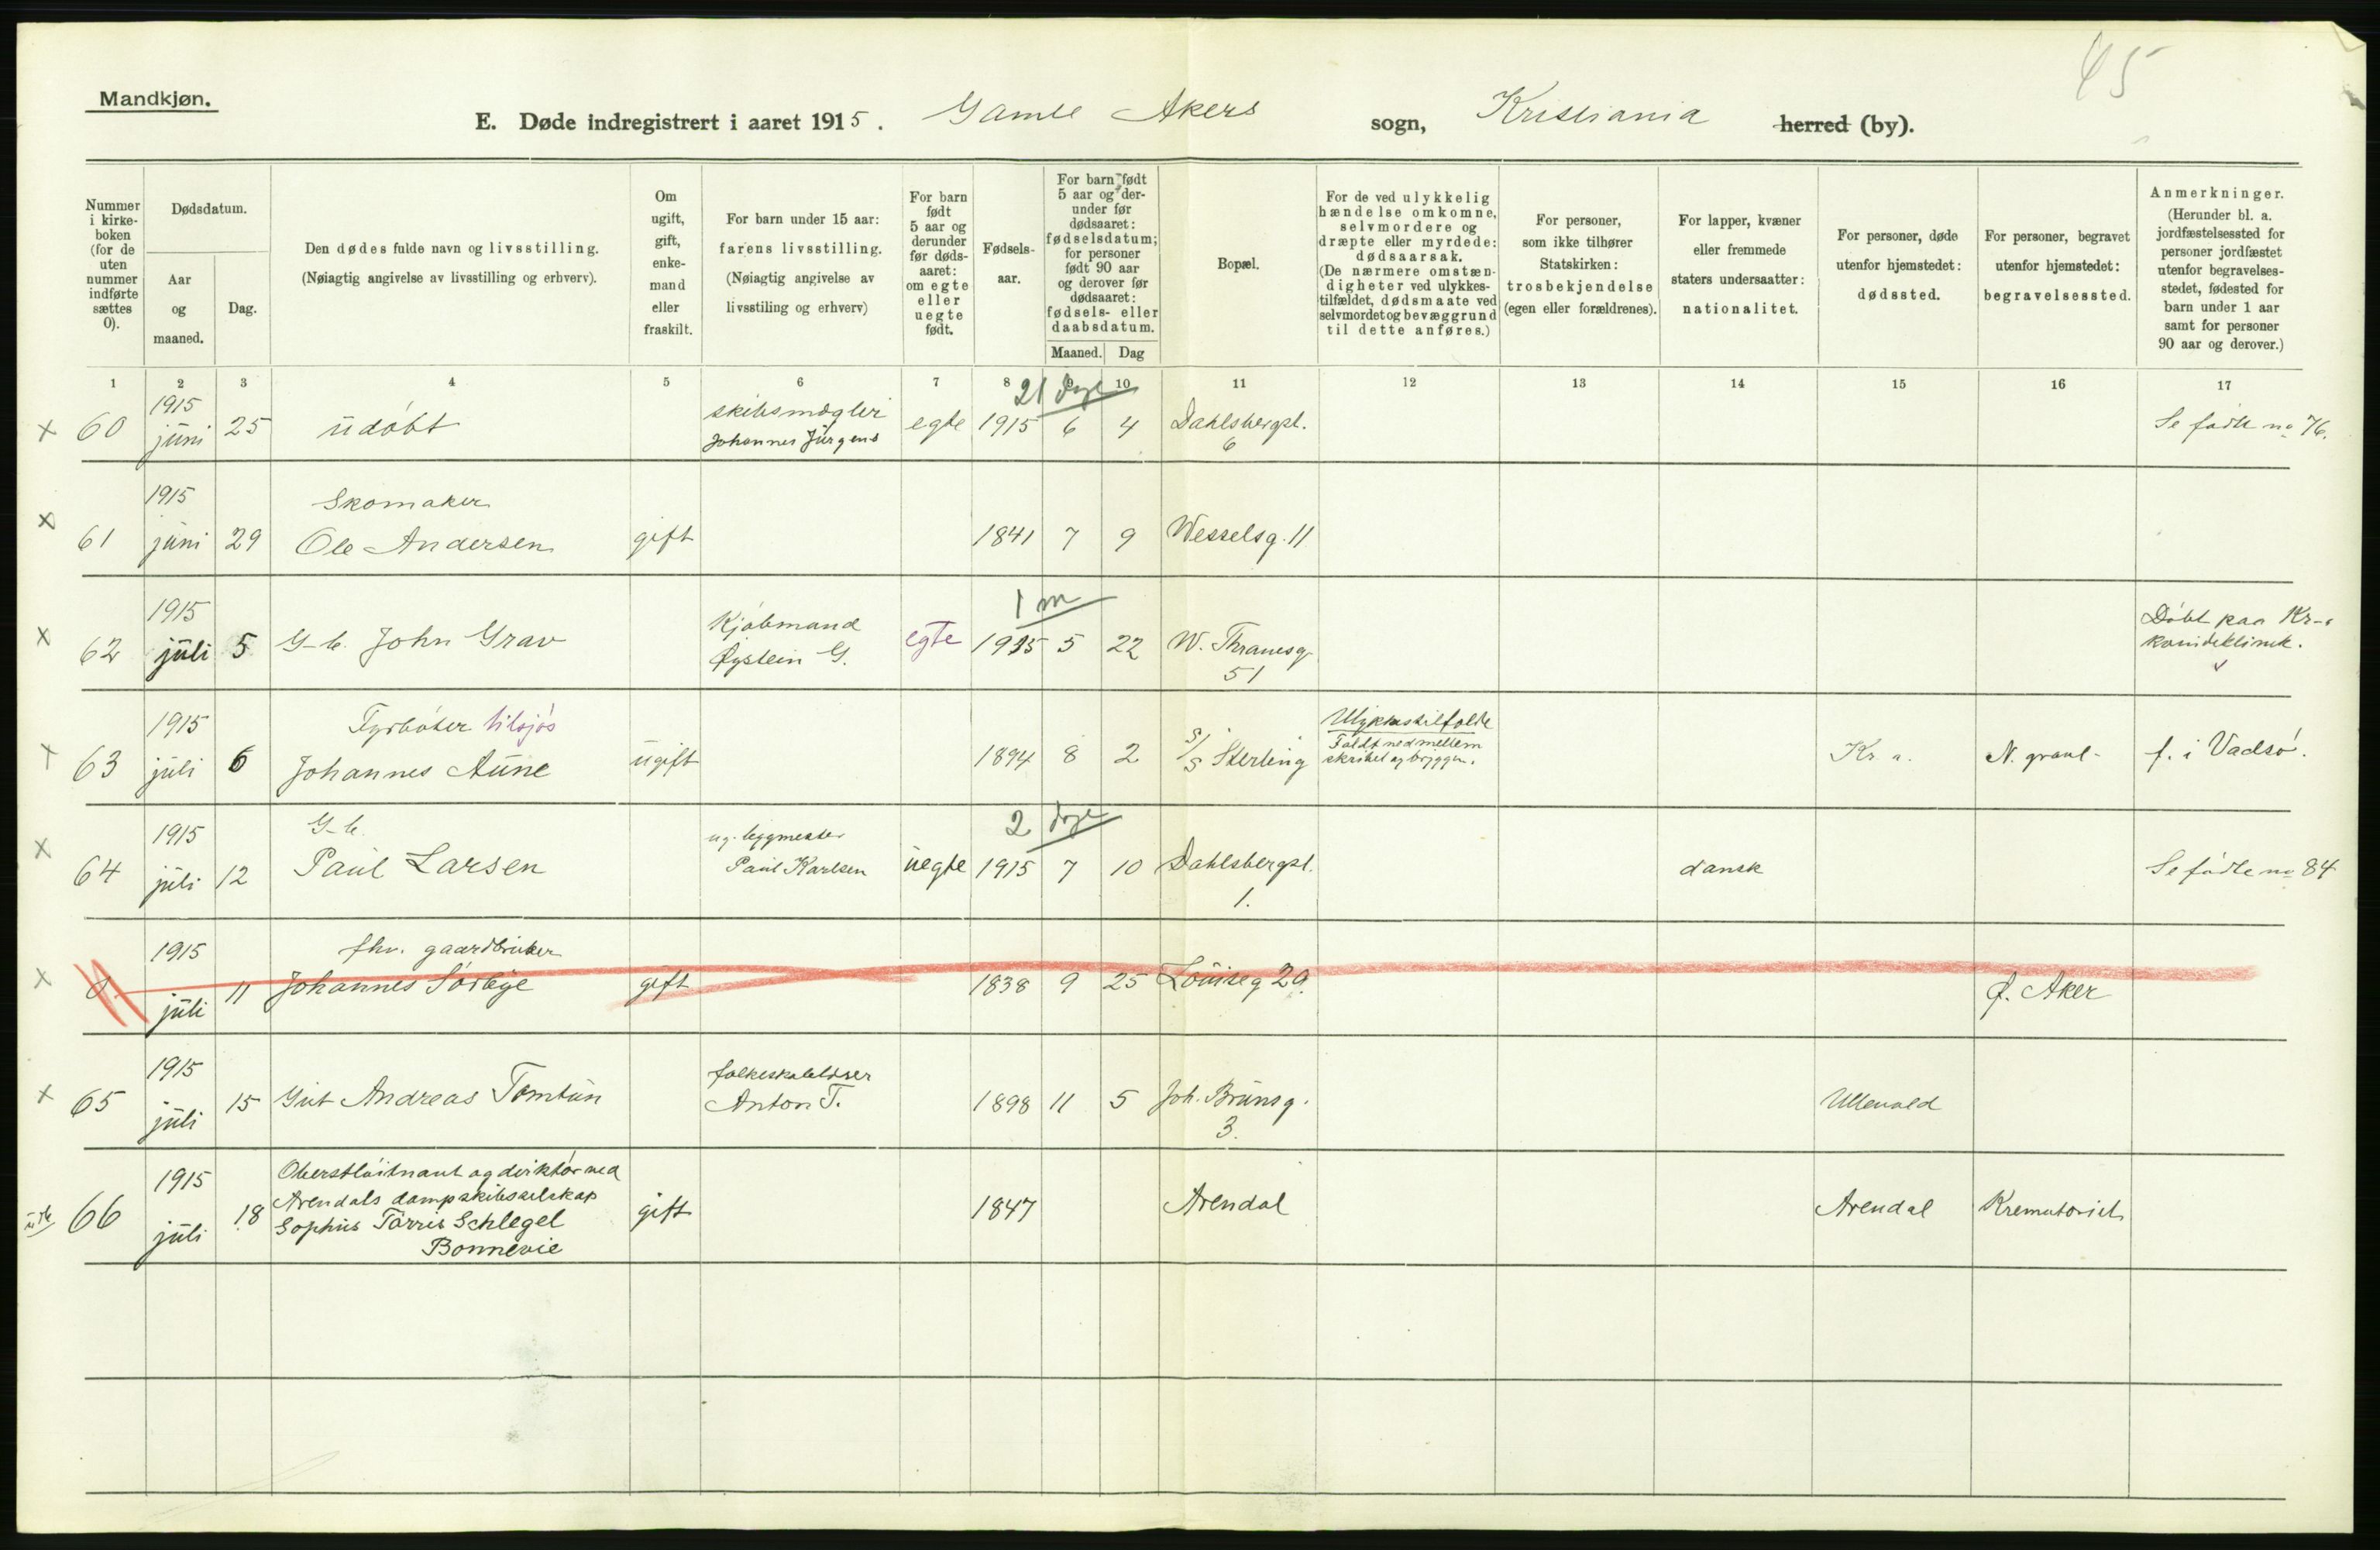 45
Mandkjøn.
E. Døde indregistrert i aaret 1915. Gamle Akers sogn, Kristiania herred (by).
Nummer i kirke-boken (for de uten nummer indførte sættes 0).
Dødsdatum.
Aar og maaned.
Dag.
Den dødes fulde navn og livsstilling.
(Nøiagtig angivelse av livsstilling og erhverv).
Om ugift, gift, enke-mand eller fraskilt.
For barn under 15 aar: farens livsstilling.
(Nøiagtig angivelse av livsstiling og erhverv)
For barn født 5 aar og derunder før døds-aaret: om egte eller uegte født.
Fødsels-aar.
For barn født 5 aar og der-under før dødsaaret: fødselsdatum; for personer født 90 aar og derover før dødsaaret: fødsels- eller daabsdatum.
Maaned. Dag
Bopæl.
For de ved ulykkelig hændelse omkomne, selvmordere og dræpte eller myrdede: dødsaarsak.
(De nærmere omstæn-digheter ved ulykkes-tilfældet, dødsmaate ved selvmordet og bevæggrund til dette anføres.)
For personer, som ikke tilhører Statskirken: trosbekjendelse (egen eller forældrenes).
For lapper, kvæner eller fremmede staters undersaatter: nationalitet.
For personer, døde utenfor hjemstedet: dødssted.
For personer, begravet utenfor hjemstedet: begravelsessted.
Anmerkninger.
(Herunder bl. a. jordfæstelsessted for personer jordfæstet utenfor begravelses-stedet, fødested for barn under 1 aar samt for personer 90 aar og derover.)
1 2 3 4 5 6 7 8 9 10 11 12 13 14 15 16 17
21 dage
x 60 1915 juni 25 udøbt skibsmægler Johannes Jürgens egte 1915 6 4 Dahlsbergst. 6 Se fødte no 76.
x 61 1915 juni 29 Skomaker Ole Andersen gift 1841 7 9 Wesselsg. 11
1 m
x 62 1915 juli 5 G-b. John Grav Kjøbmand Øystein G. egte 1915 5 22 W. Thranesg 51 Døbt paa Kr-a kvindeklinik.
x 63 1915 juli 6 Fyrbøter tilsjøs Johannes Aune ugift 1894 8 2 S/S Sterling Ulykkestilfælde Faldt ned mellem skibet og bryggen. Kr. a. N. gravl. f. i Vadsø.
2 dage
x 64 1915 juli 12 G-b. Paul Larsen ug. byggmester Paul Karlsen uegte 1915 7 10 Dahlsbergst. 1. dansk Se fødte no 84
x 0 1915 juli 11 fhv. gaardbruker Johannes Sørbye gift 1838 9 25 Louiseg 29. Ø. Aker
x 65 1915 juli 15 Gut Andreas Tomtun folkeskolelærer Anton T. 1898 11 5 Joh. Brunsg. 3. Ullevold
66 1915 juli 18 Oberstløitnant og direktør ved Arendals dampskibsselskap Sophus Tørris Schlegel Bonnevie gift 1847 Arendal Arendal Krematoriet